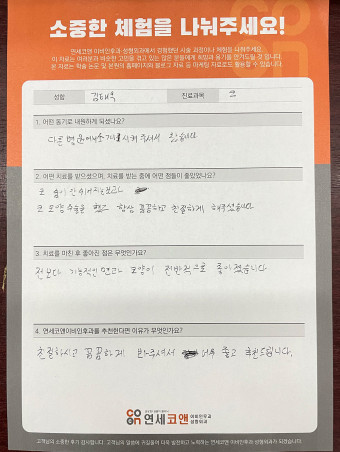 소중한 체험을 나눠주세요!
연세코앤 이비인후과·성형외과에서 경험했던 시술 과정이나 체험을 나눠주세요.
이 자료는 여러분과 비슷한 고민을 겪고 있는 많은 분들에게 희망과 용기를 안겨드릴 것 입니다.
본 자료는 학술 논문 및 본원의 홈페이지와 블로그 자료 및 마케팅 자료로도 활용될 수 있습니다.
성함 김태욱 진료과목 코
1. 어떤 동기로 내원하게 되셨나요?
다른 병원에서 소개시켜 주셔서 왔습니다
2. 어떤 치료를 받으셨으며, 치료를 받는 중에 어떤 점들이 좋았었나요?
코 숨이 안 쉬어지는 코와
코 모양 수술을 했고 항상 꼼꼼하고 친절하게 해주셨습니다
3. 치료를 마친 후 좋아진 점은 무엇인가요?
전보다 기능적인 면과 모양이 전반적으로 좋아졌습니다
4. 연세코앤이비인후과를 추천한다면 이유가 무엇인가요?
친절하시고 꼼꼼하게 봐주셔서 너무 좋고 추천드립니다.
연세코앤 이비인후과 성형외과
고객님의 소중한 후기 감사합니다. 고객님의 말씀에 귀기울여 더욱 발전하고 노력하는 연세코앤 이비인후과 성형외과가 되겠습니다.